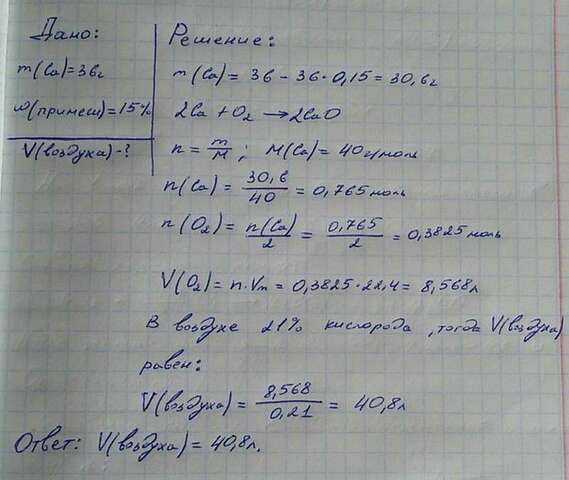 Дано:
m(Ca)=36г
ω(примеси)=15%
V(воздуха)-?
Решение:
m(Ca) = 36 - 36·0,15 = 30,6г
2Ca + O₂ → 2CaO
n = m/M ; M(Ca) = 40г/моль
n(Ca) = 30,6/40 = 0,765 моль
n(O₂) = n(Ca)/2 = 0,765/2 = 0,3825 моль
V(O₂) = n·Vm = 0,3825·22,4 = 8,568л
В воздухе 21% кислорода, тогда V(воздуха)
равен:
V(воздуха) = 8,568/0,21 = 40,8л
Ответ: V(воздуха) = 40,8л.